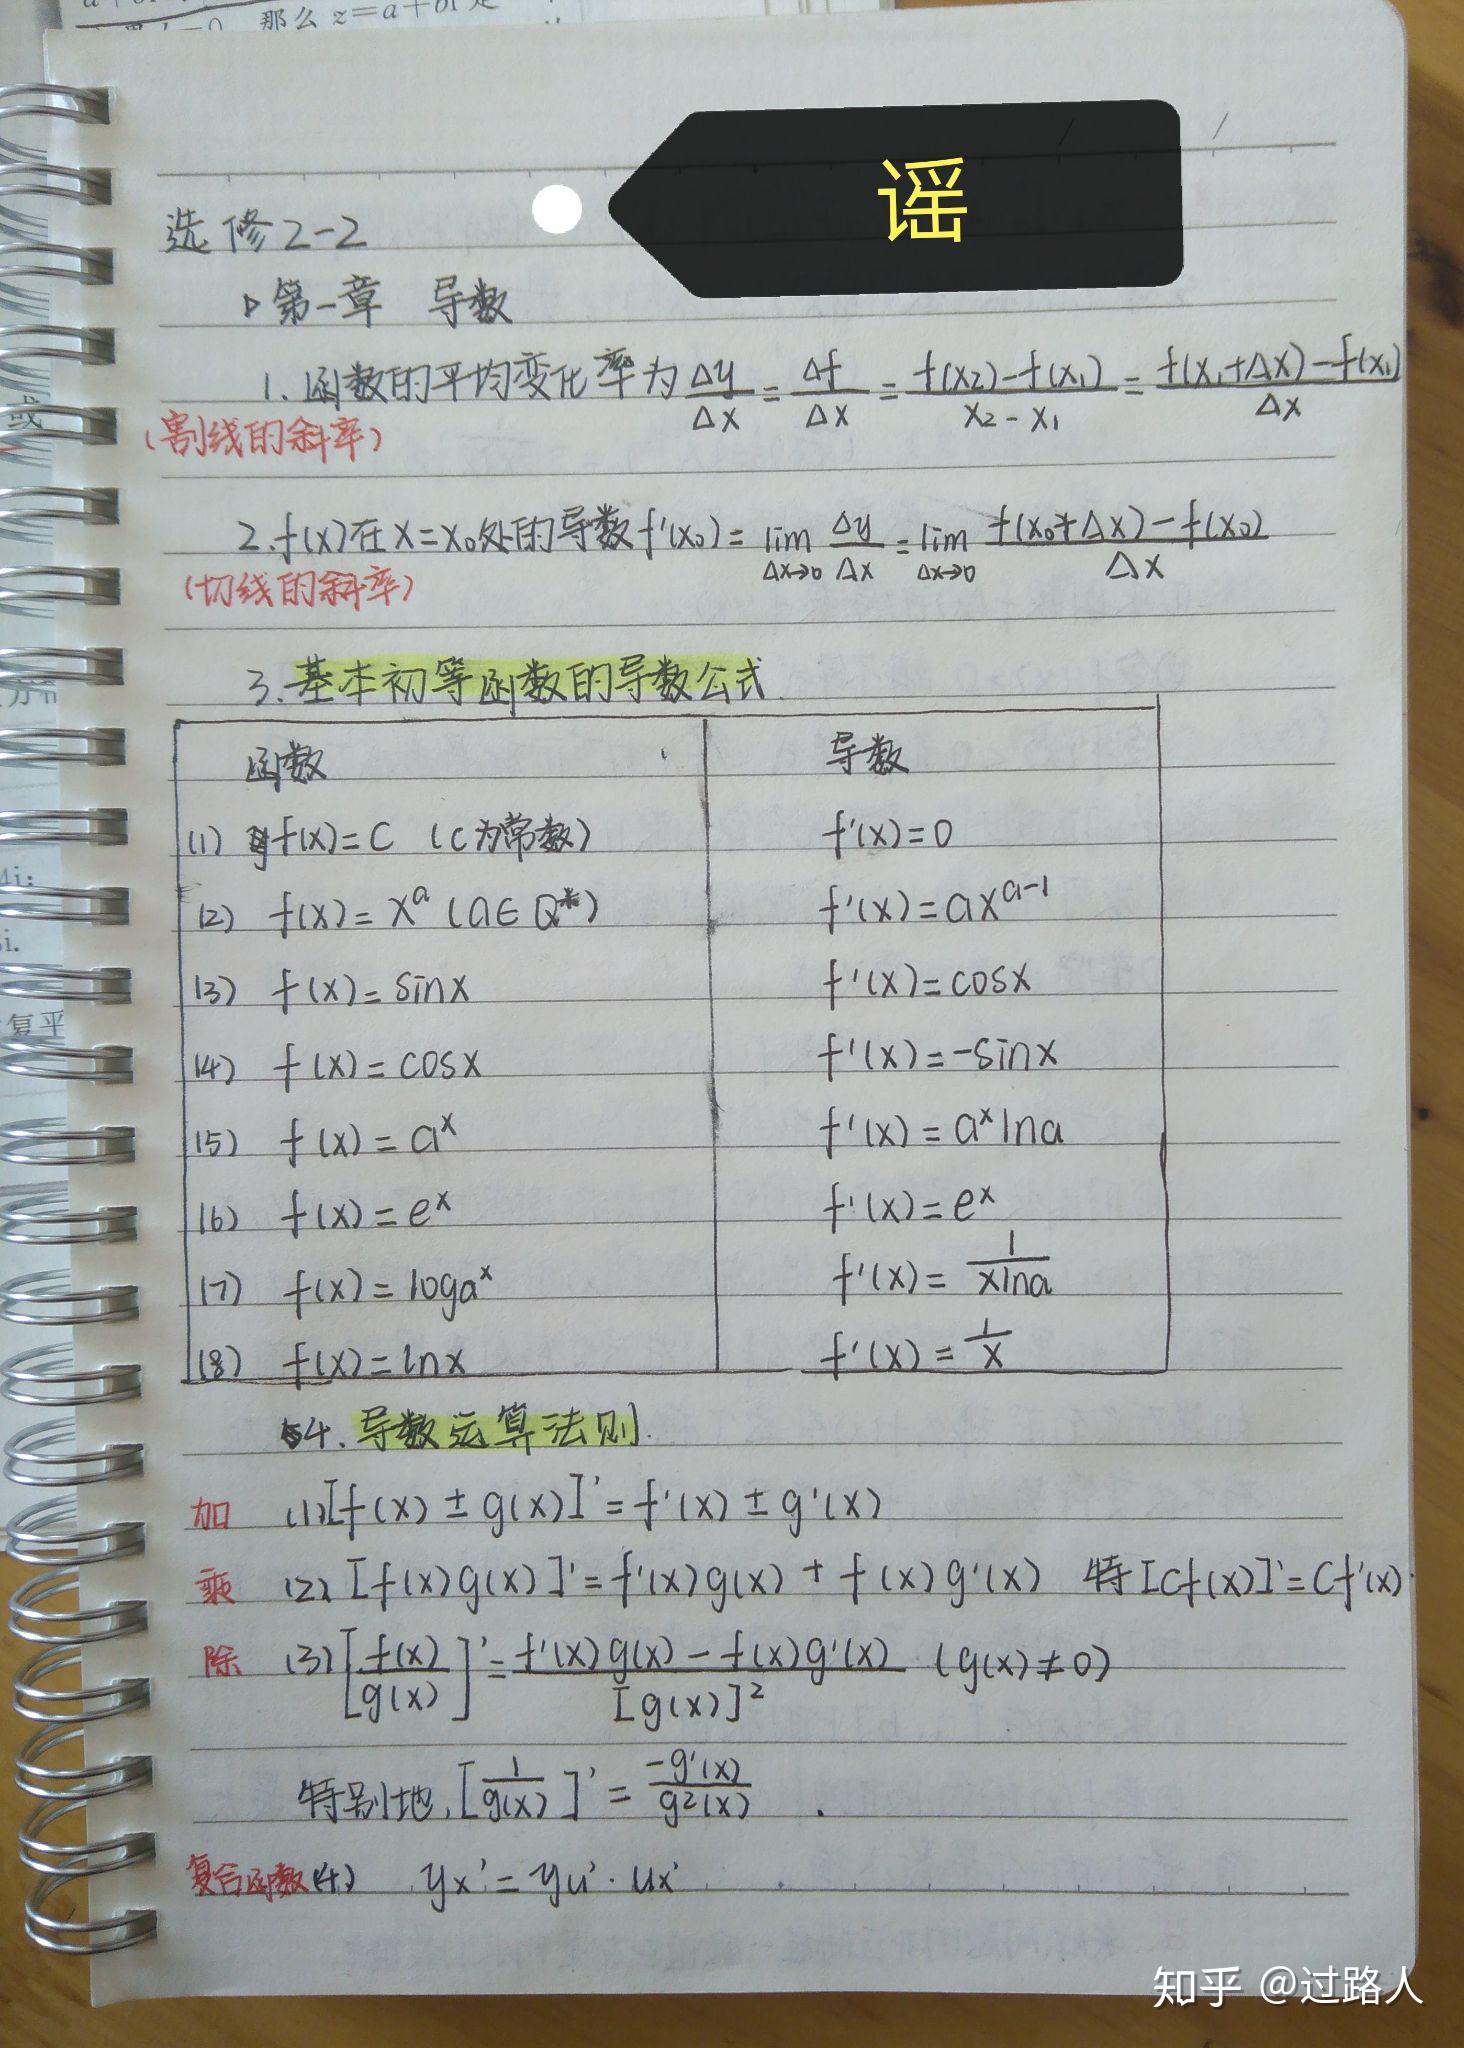 那么z=a+bi是
谣
选修2-2
第一章 导数
1.函数的平均变化率为Δy/Δx=Δf/Δx=f(x₂)-f(x₁)/x₂-x₁=f(x₁+Δx)-f(x₁)/Δx
(割线的斜率)
2.f(x)在x=x₀处的导数f'(x₀)=lim Δx→0 Δy/Δx=lim Δx→0 f(x₀+Δx)-f(x₀)/Δx
(切线的斜率)
3.基本初等函数的导数公式.
函数 导数
(1) f(x)=C (C为常数) f'(x)=0
(2) f(x)=xᵃ (a∈Q*) f'(x)=axᵃ⁻¹
(3) f(x)=sinx f'(x)=cosx
(4) f(x)=cosx f'(x)=-sinx
(5) f(x)=aˣ f'(x)=aˣlna
(6) f(x)=eˣ f'(x)=eˣ
(7) f(x)=logaˣ f'(x)=1/xlna
(8) f(x)=lnx f'(x)=1/x
4.导数运算法则.
加 (1)[f(x)±g(x)]'=f'(x)±g'(x)
乘 (2)[f(x)g(x)]'=f'(x)g(x)+f(x)g'(x) 特[Cf(x)]'=Cf'(x).
除 (3)[f(x)/g(x)]'=f'(x)g(x)-f(x)g'(x)/[g(x)]² (g(x)≠0)
特别地,[1/g(x)]'=-g'(x)/g²(x).
复合函数(4) yx'=yu'·ux'
或
复平
知乎 @过路人